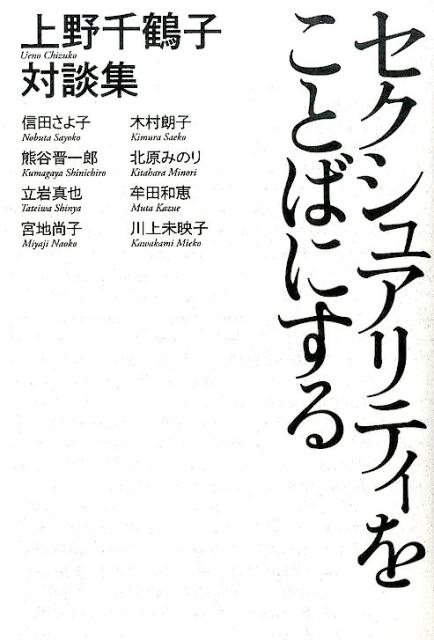 セクシュアリティを
ことばにする
上野千鶴子
Ueno Chizuko
対談集
信田さよ子
Nobuta Sayoko
木村朗子
Kimura Saeko
熊谷晋一郎
Kumagaya Shinichiro
北原みのり
Kitahara Minori
立岩真也
Tateiwa Shinya
牟田和恵
Muta Kazue
宮地尚子
Miyaji Naoko
川上未映子
Kawakami Mieko